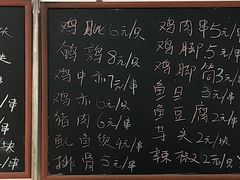 鸡肫6元/只
鹌鹑8元/只
鸡中赤7元/串
鸡赤6元/串
猪肉6元/串
鱿鱼须4元/串
排骨5元/串
鸡肉串5元/串
鸡脚5元/
鸡脚筒3元/
鱼旦/串
鱼豆腐2元/串
芋头2元/块
辣椒2元/只
块
串
串
串